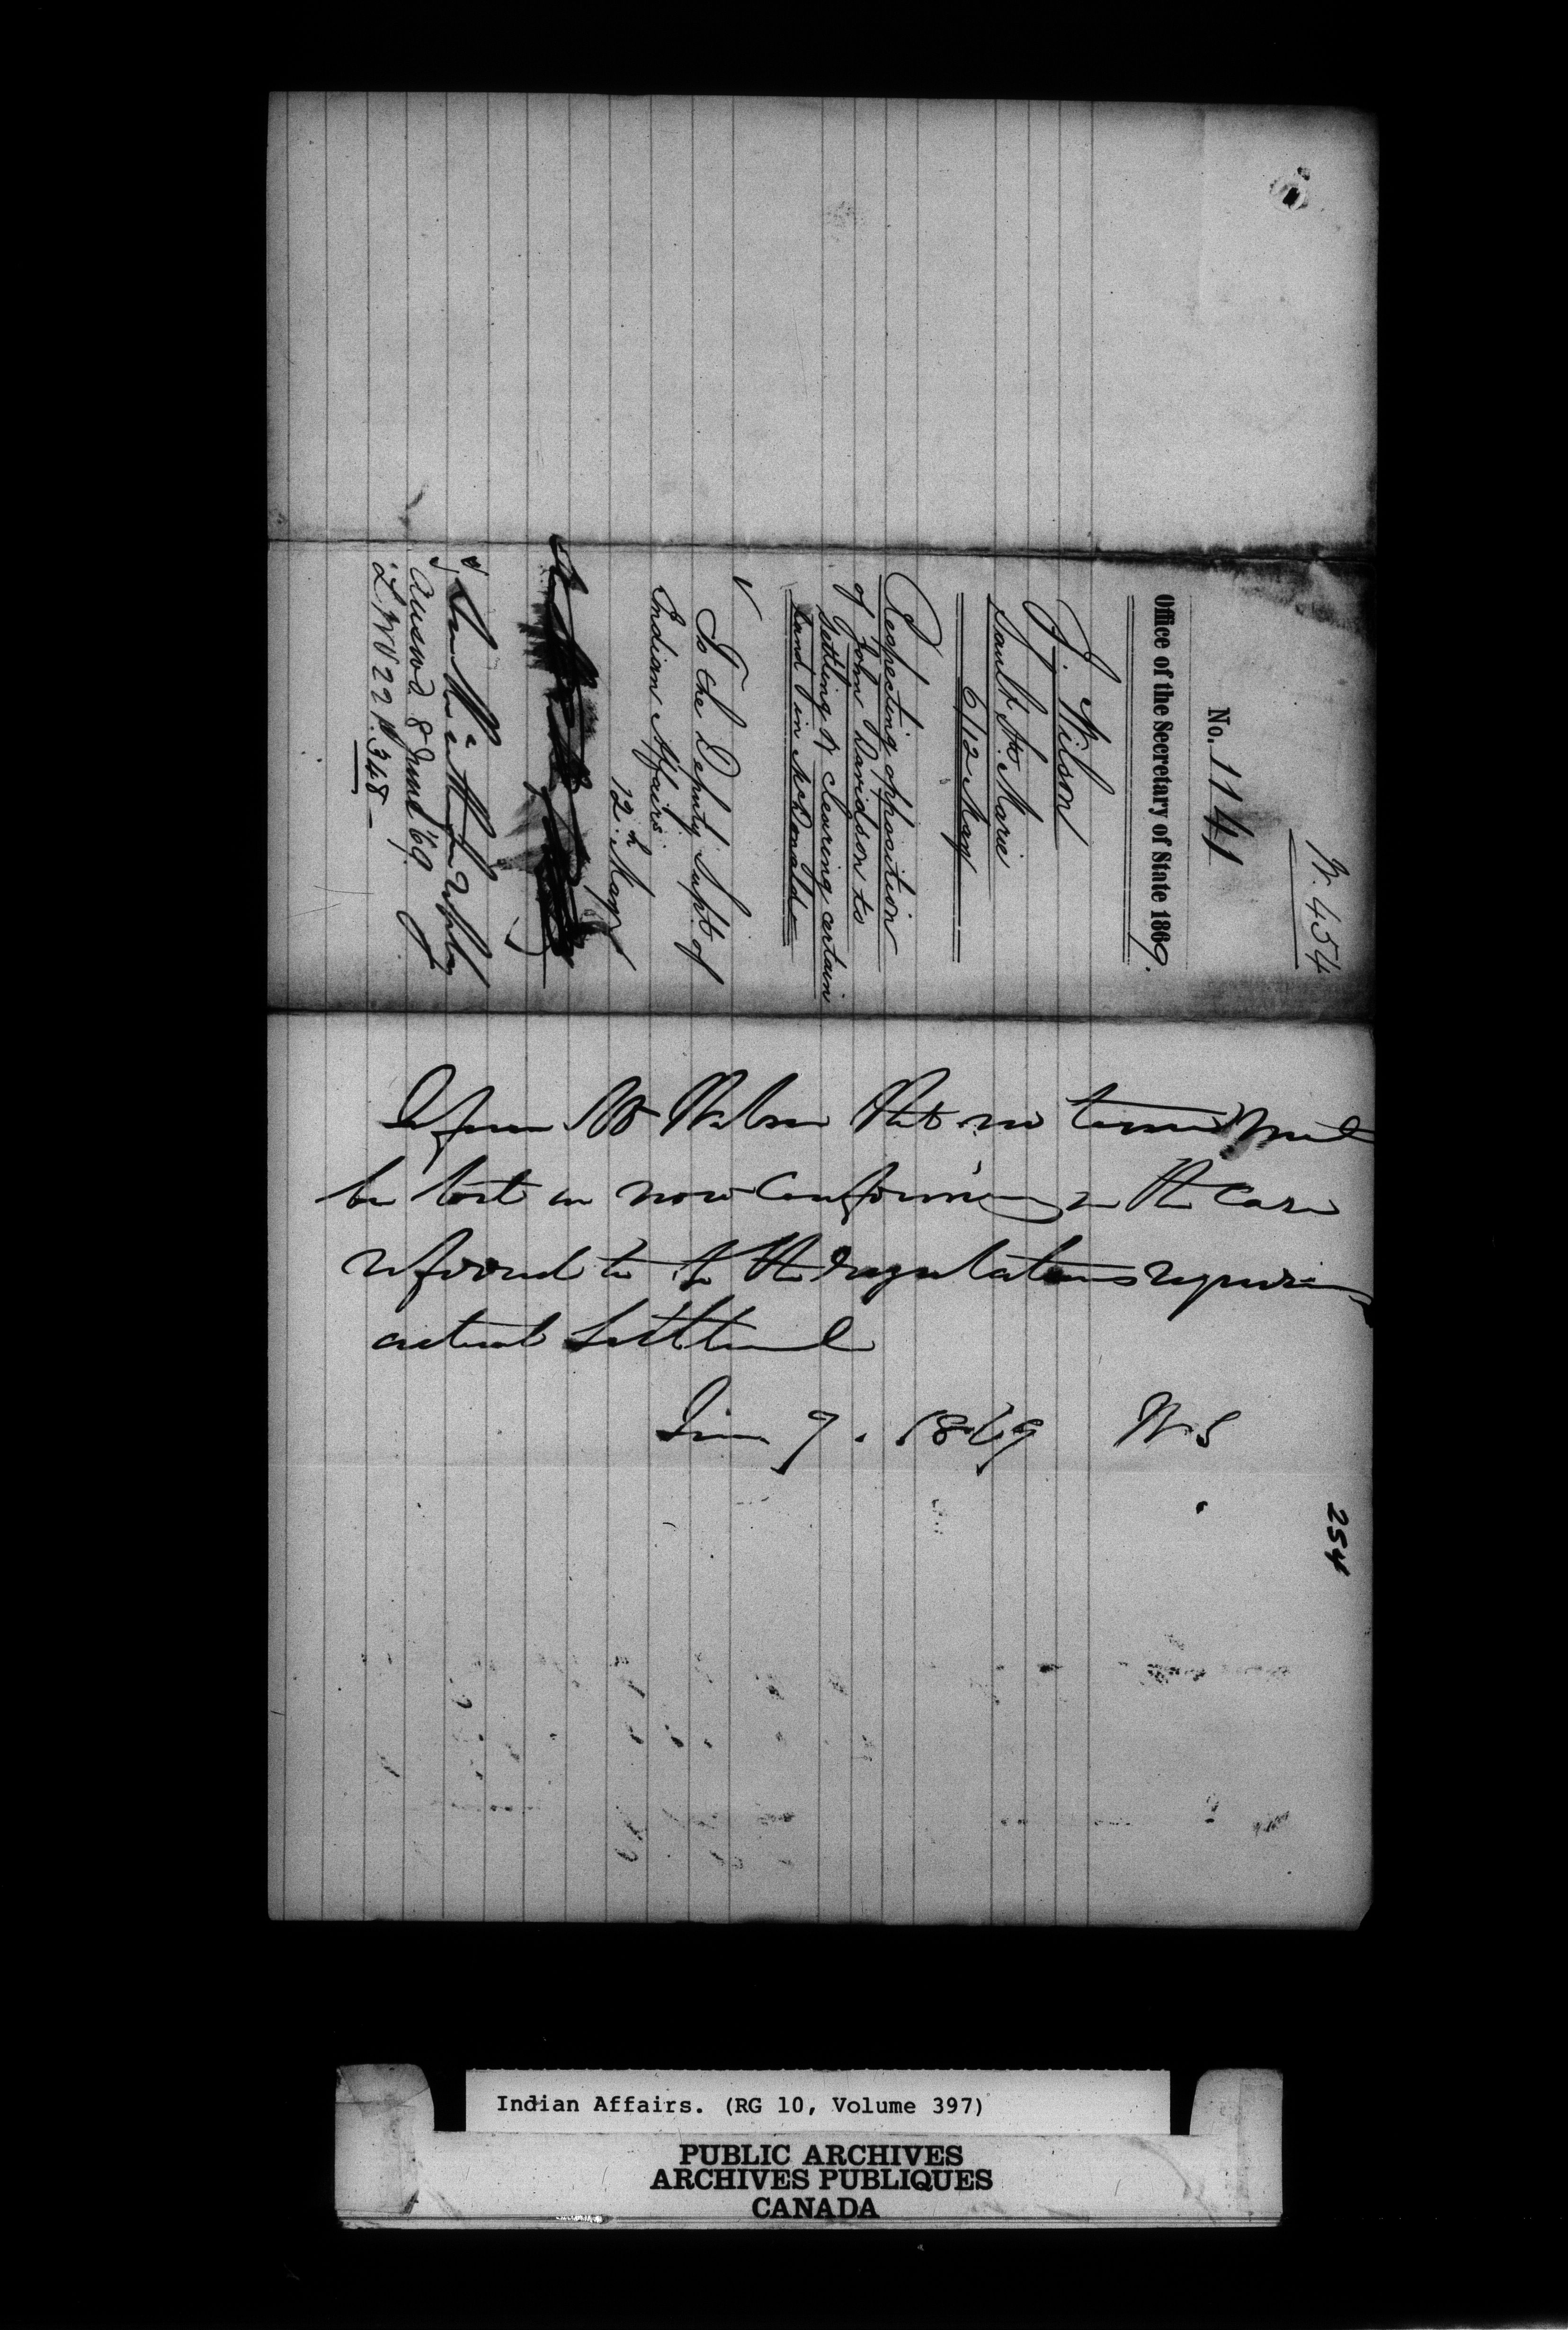 W. 454
No. 1141
Office of the Secretary of State 1869.
J. Wilson
Sault Ste. Marie
6/12 May
Respecting opposition
of John Davidson to
settling & clearing certain
land in McDonald
To the Deputy Supt. of
Indian Affairs
12th May
Answd 8 June '69
L. W. 22 P. 348
Inform Mr Wilson that no time must
be lost in now conforming in the case
referred to to the regulations requiring
actual settlement
June 7. 1869 W. S
254
Indian Affairs. (RG 10, Volume 397)
PUBLIC ARCHIVES
ARCHIVES PUBLIQUES
CANADA